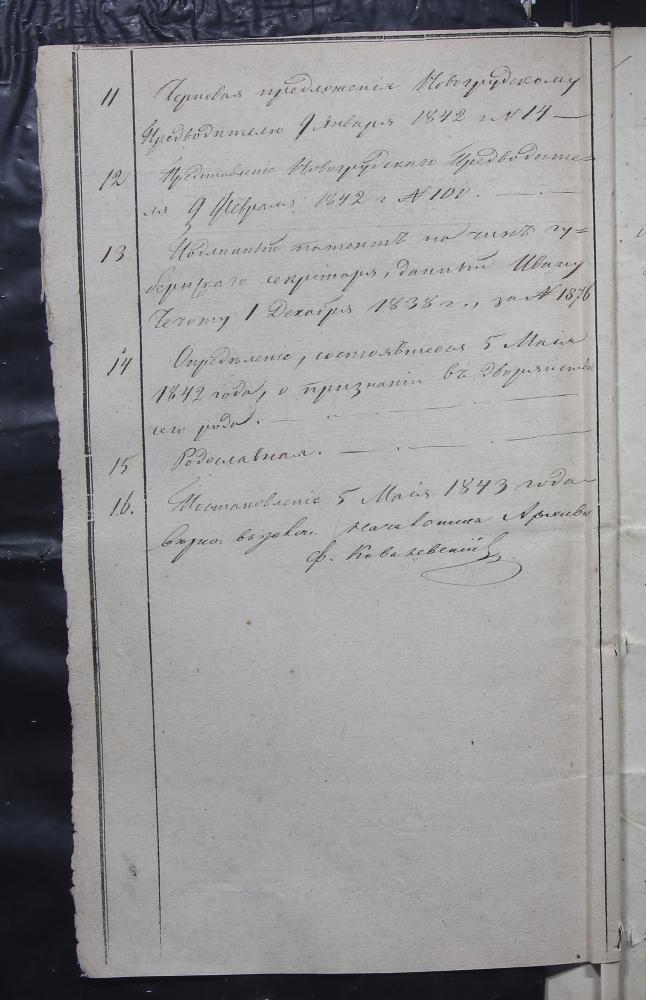 11 Черневая предложенія Новогрудскому
Предводителю 9 Января 1842 г. № 14 —
12 Представленіе Новогрудскаго Предводите-
ля 9 Февраля 1842 г. № 100. — . —
13 патентъ на чинъ гу-
бернскаго секретаря, данный Ивану
Чечоту 1 Декабря 1838 г., за № 1876
14 Опредѣленіе, состоявшееся 5 Маія
1842 года, о признаніи въ дворянствѣ
его рода. —
15 Родословная. — . — . —
16. Постановленіе 5 Маія 1843 года
Архива
Ф. Ковалевскій